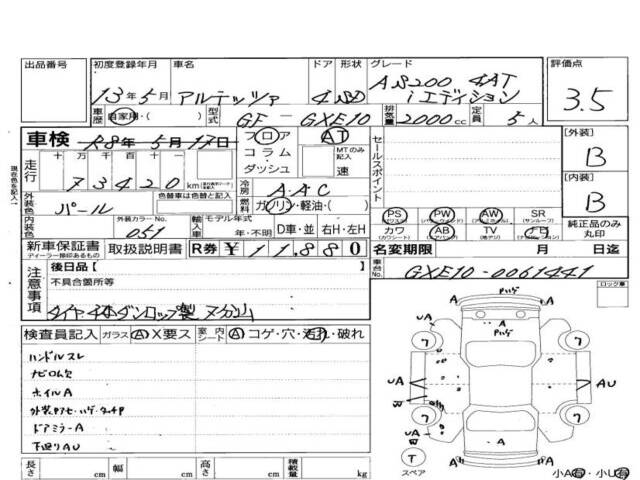 出品番号 初度登録年月 車名 ドア 形状 グレード 評価点
13年5月 アルテッツァ 4 SD AS200 4AT iエディション 3.5
車歴 自家用・( ) 型式 GF-GXE10 排気量 2000cc 定員 5人
車検 R8年5月17日 フロア AT
コラム MTのみ記入
ダッシュ 速
走行 十 万 千 百 十 一
73420 km
冷房 AAC
セールスポイント
[外装] B
[内装] B
外装色 パール 色替車は色替前 燃料 ガソリン・軽油・( )
内装色 外装カラーNo. 051 輸入車 モデル年式 年・不明 D車・並 右H・左H
PS PW AW SR(サンルーフ)
カワ AB TV 純正品のみ丸印
新車保証書 取扱説明書 R券 ¥11,880
ディーラー捺印あるもの
名変期限 月 日迄
注意事項 後日品【 】
不具合箇所等
車台No. GXE10-0061441
ロック車
タイヤ4本ダンロップ製
検査員記入 ガラス A X要ス 室内シート A コゲ・穴・汚れ・破れ
ハンドルスレ
ナビロム欠
ホイルA
ドアミラーA
下廻りAU
現在色を記入
A A
UA A
7 7
UA AU
7 7
UA A
T
スペア
A A
小A有・小U有
長さ cm 幅 cm 高さ cm 積載量 kg